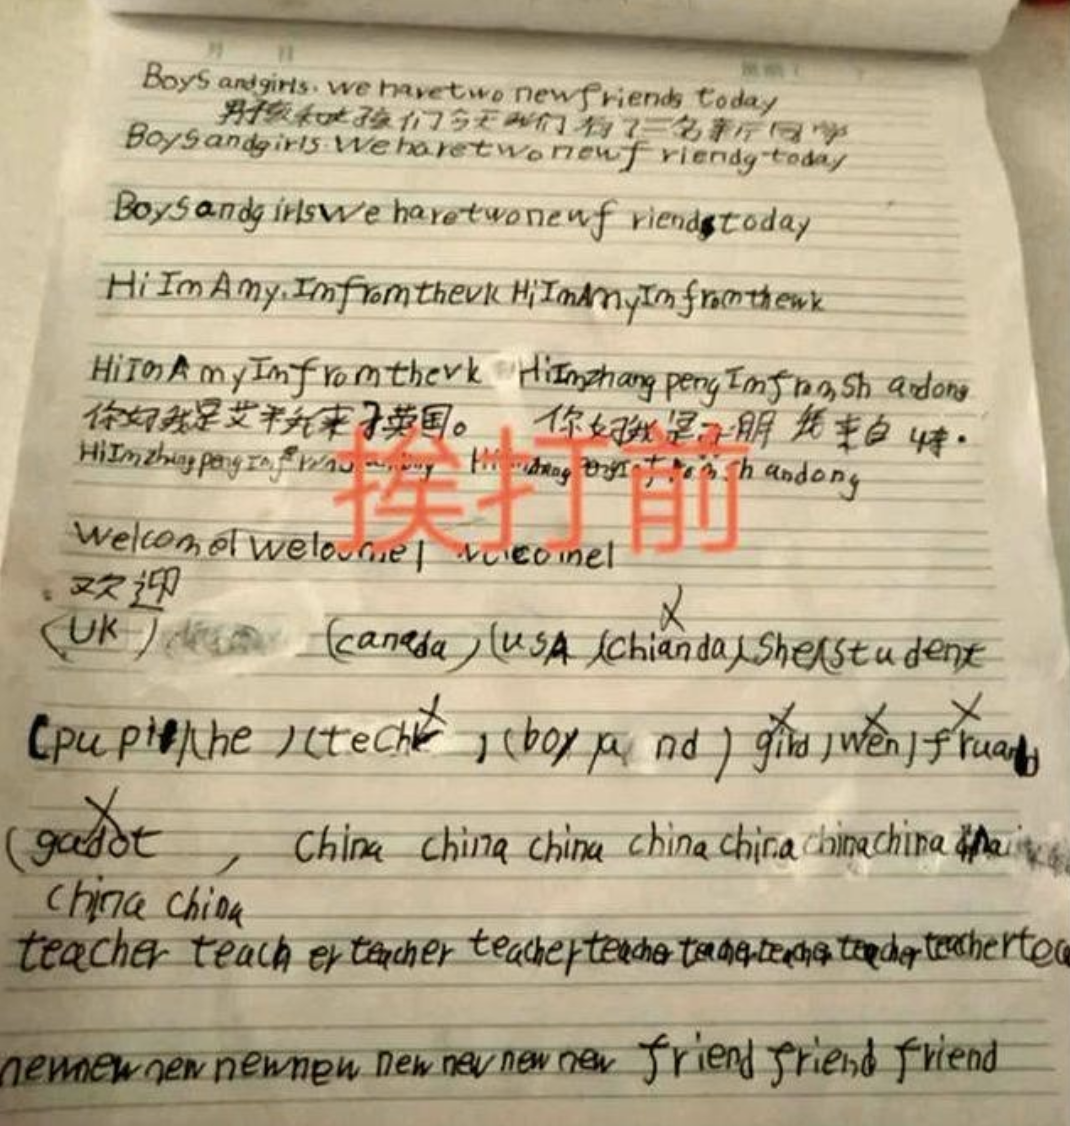 月 日 星期
Boys andgirls. we havetwo newfriends today
男孩和女孩们今天我们有了二名新同学
Boysandgirls Weharetwonewf riendg today
Boysandg irlsWe haretwonewf riendstoday
Hi Im Amy.Imfromthevk HiImAmyImfromthewk
HiImAmyImfromthevk HiImzhang pengImfromSh andong
你好我是艾米 来于英国。 你好我是 朋 来自
HiImzhangpeng Im andong
welcome! welcome! welcome!
挨打前
欢迎
(UK) (canada),(usA,(chianda),She,(student
(pupil),he ),(tech ,(boy nd ) gird),wen),fruand
(gadot , China china china china china china china
china china
teacher teach er teacher teacher teacher teacher teacher teacher teacher tea
new new new new new new new new new friend friend friend